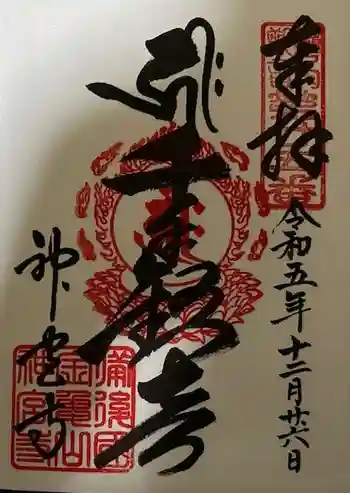 奉拝
令和五年十二月廿六日
千手観音
神宮寺
備後國
金亀山
神宮寺